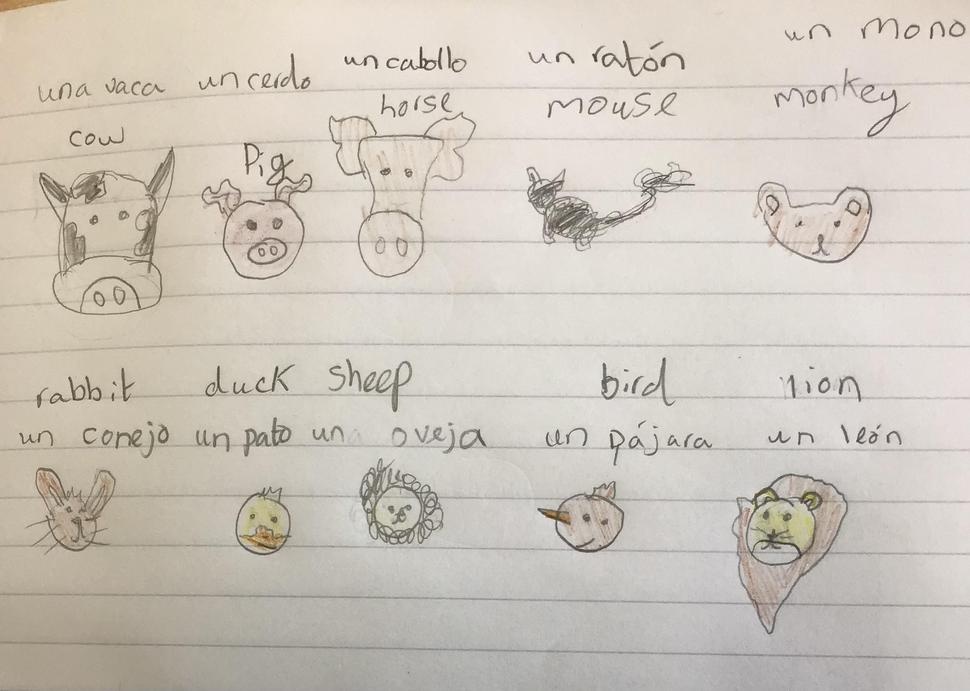 una vaca un cerdo un cabllo un ratón un mono
cow Pig horse mouse monkey
rabbit duck sheep bird lion
un conejo un pato una oveja un pájara un león